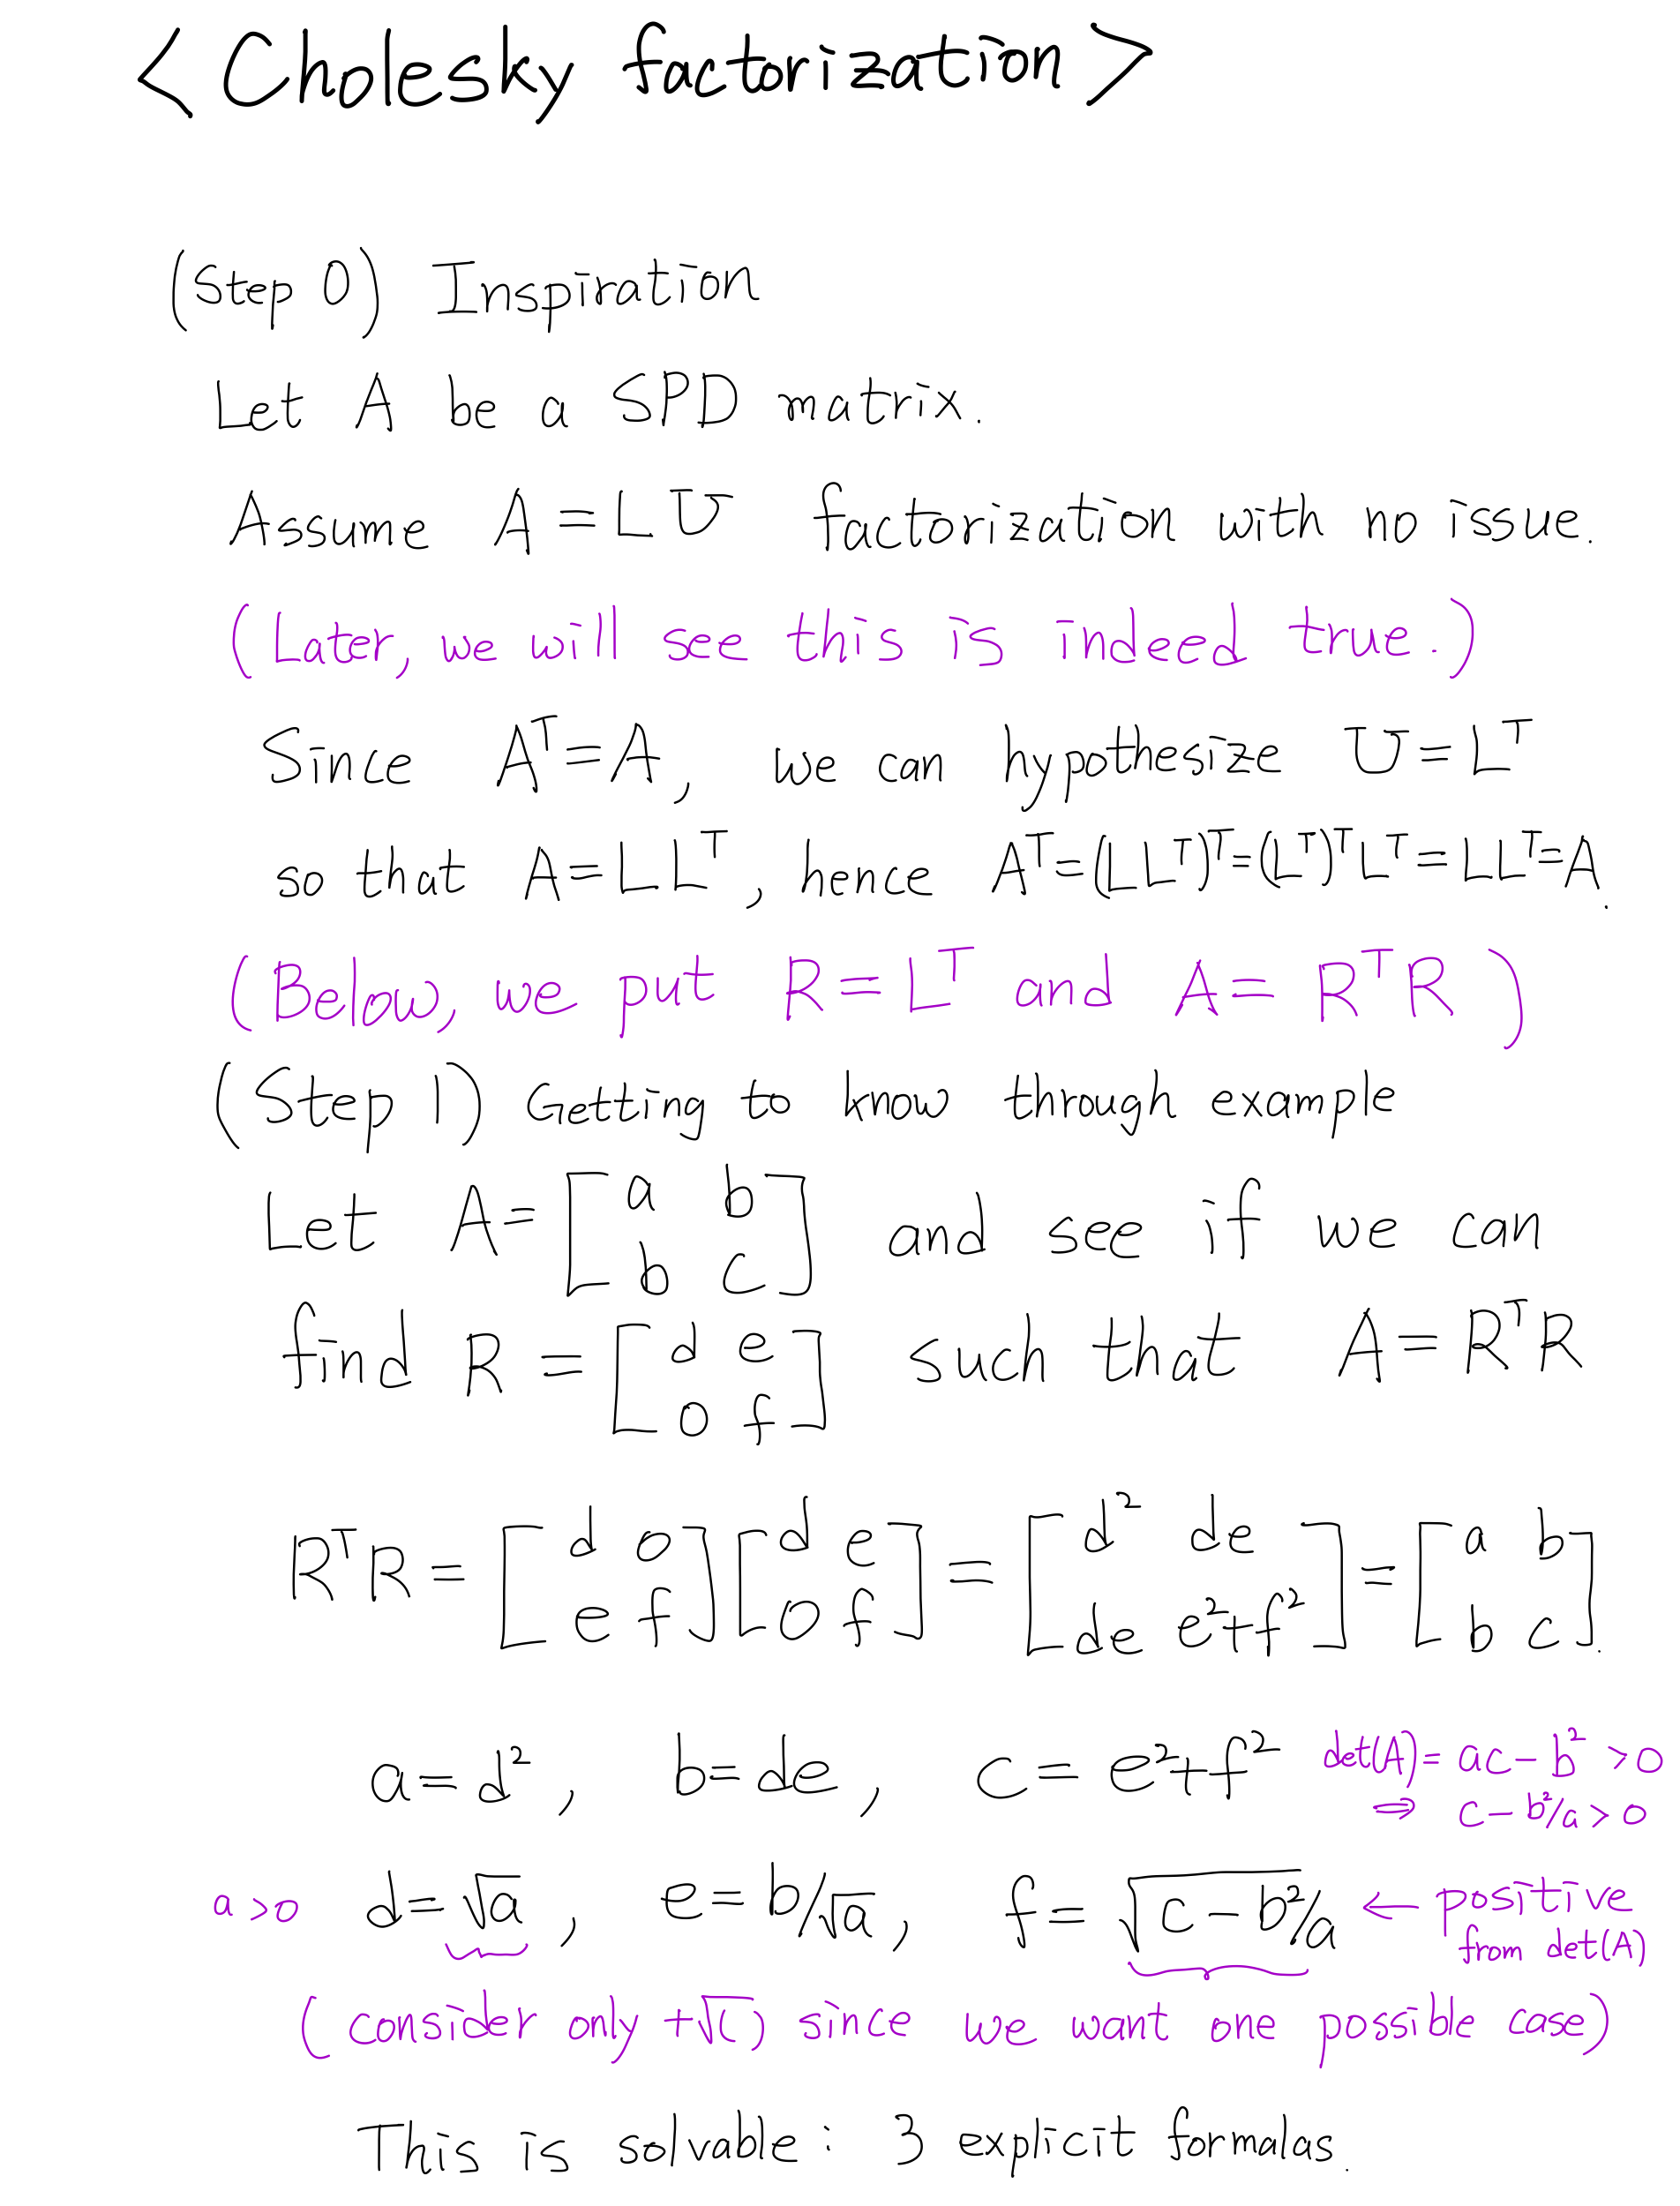 < Cholesky factorization >
(Step 0) Inspiration
Let A be a SPD matrix.
Assume A = LU factorization with no issue.
(Later, we will see this is indeed true.)
Since Aᵀ = A, we can hypothesize U = Lᵀ
so that A = LLᵀ, hence Aᵀ = (LLᵀ)ᵀ = (Lᵀ)ᵀLᵀ = LLᵀ = A.
(Below, we put R = Lᵀ and A = RᵀR)
(Step 1) Getting to know through example
Let A = [a b; b c] and see if we can
find R = [d e; 0 f] such that A = RᵀR
RᵀR = [d 0; e f][d e; 0 f] = [d² de; de e²+f²] = [a b; b c].
a = d², b = de, c = e²+f² det(A) = ac − b² > 0
⇒ c − b²/a > 0
a > 0 d = √a, e = b/√a, f = √(c − b²/a) ← positive
from det(A)
(consider only +√( ) since we want one possible case)
This is solvable : 3 explicit formalas.